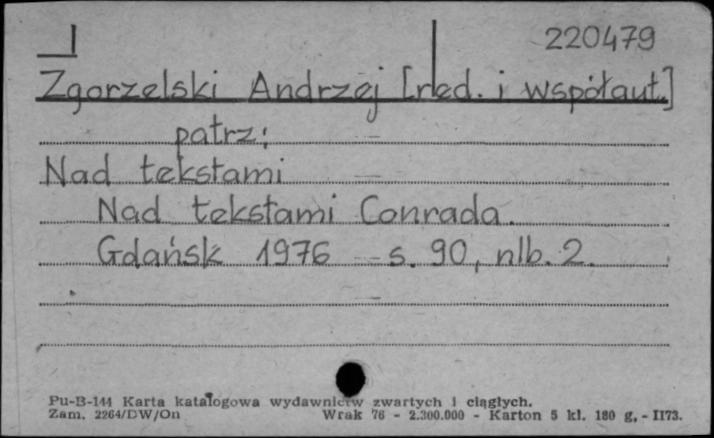 220479
Zgorzelski Andrzej [red. i współaut.]
patrz:
Nad tekstami
Nad tekstami Conrada.
Gdańsk 1976 - s. 90, nlb. 2.
Pu-B-144 Karta katalogowa wydawnictw zwartych i ciągłych.
Zam. 2264/DW/On Wrak 76 - 2.300.000 - Karton 5 kl. 180 g. - II73.